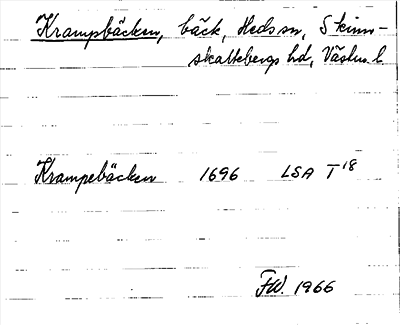 Krampsbäcken, bäck, Heds sn, Skinn-
skattebergs hd, Västm. l.
Krampebäcken 1696 LSA T 18
FW. 1966